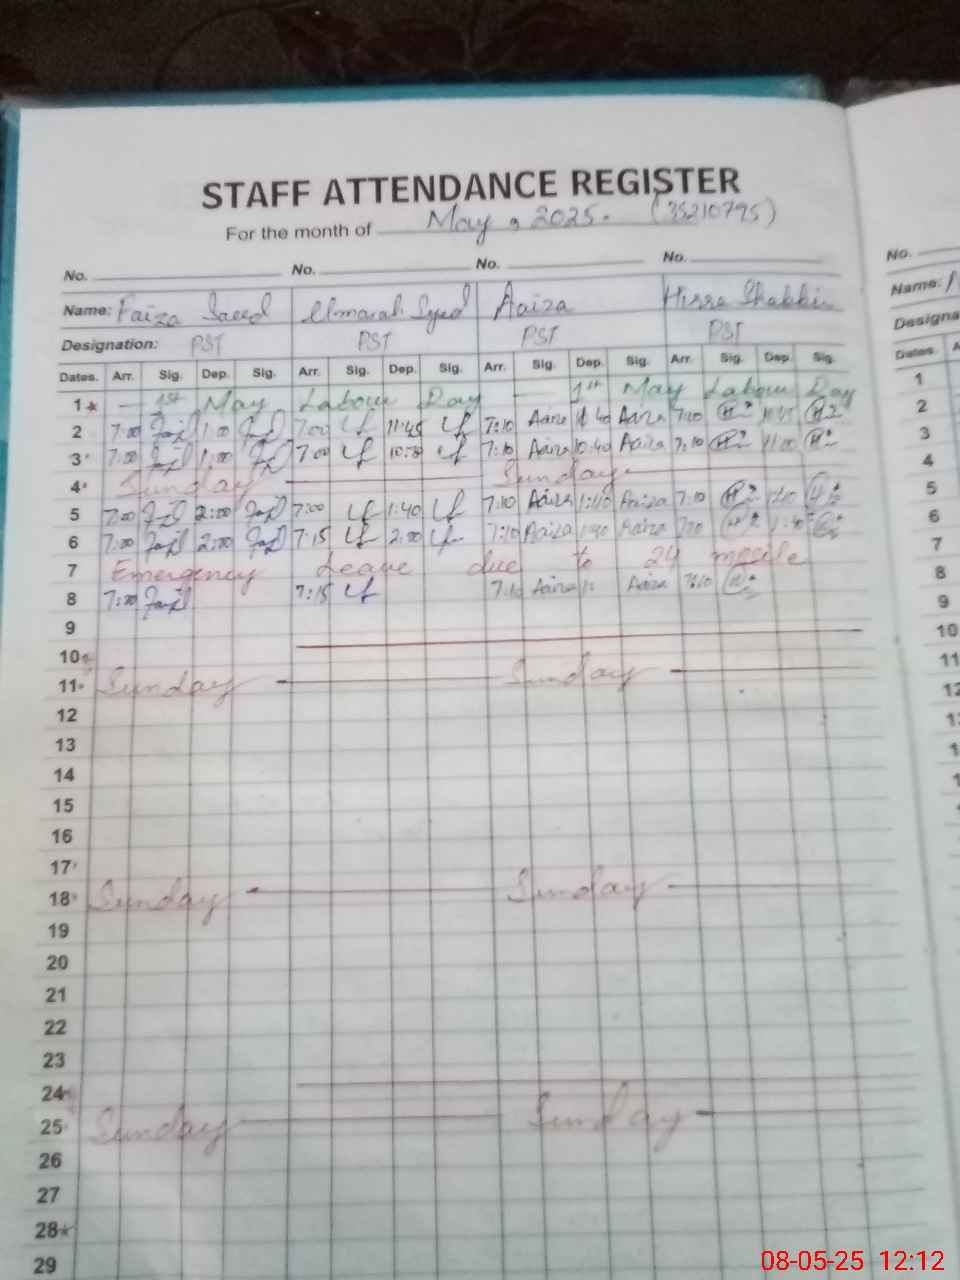 STAFF ATTENDANCE REGISTER
For the month of May, 2025. (35210795)
No. No. No. No. No.
Name: Faiza Saeed Umarah Syed Aaiza Hisra Shabbir Name:
Designation: PST PST PST PST Designa
Dates. Arr. Sig. Dep. Sig. Arr. Sig. Dep. Sig. Arr. Sig. Dep. Sig. Arr. Sig. Dep. Sig. Dates. A
1 — 1st May Labour Day — 1st May Labour Day 1
2 7:00 1:00 7:00 11:45 7:10 Aaiza 10:40 Aaiza 7:10 2
3 7:00 1:00 7:00 7:10 Aaiza 10:40 Aaiza 7:10 11:00 3
4 Sunday Sunday 4
5 7:00 2:00 7:00 1:40 7:10 Aaiza 1:40 Aaiza 7:10 5
6 7:00 2:00 7:15 2:00 7:10 Aaiza 1:40 Aaiza 1:40 6
7 Emergency Leave due to 24 missile 7
8 7:00 7:15 7:10 Aaiza Aaiza 7:10 8
9 9
10 10
11 Sunday — Sunday — 11
12 12
13 1
14
15
16
17
18 Sunday — Sunday —
19
20
21
22
23
24
25 Sunday Sunday —
26
27
28
29
08-05-25 12:12